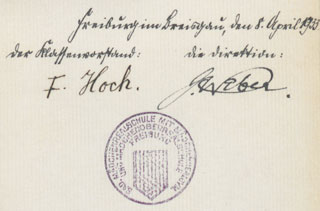 Freiburg im Breisgau, den 8. April 1933
der Klassenvorstand: die Direktion:
F. Hoch. Weber.
FREIBURG